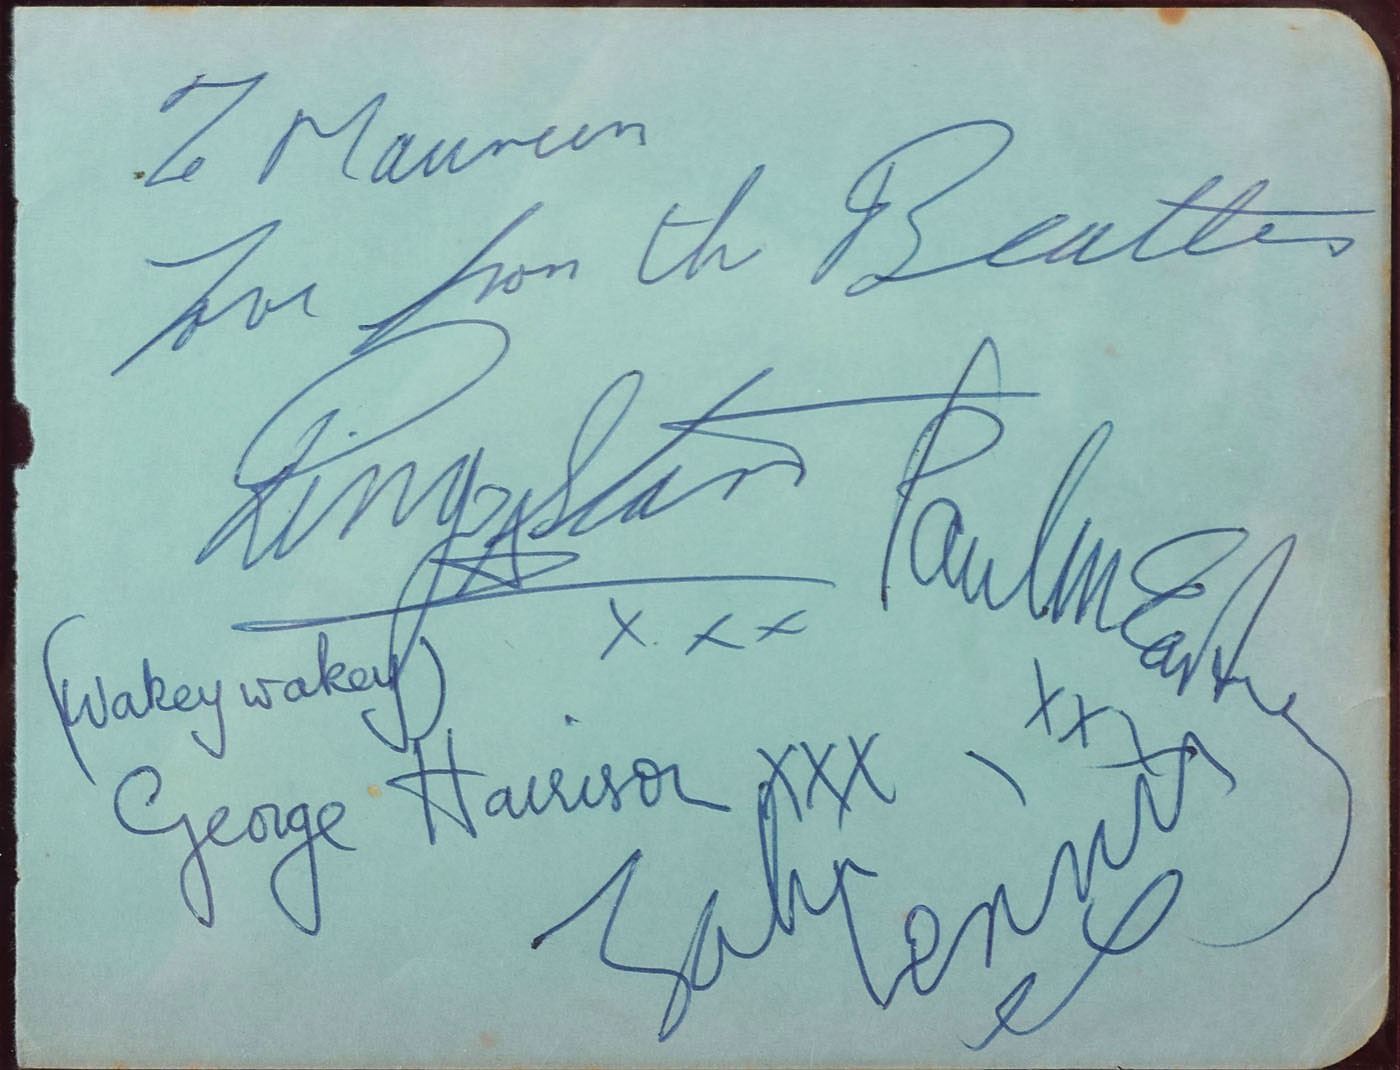 To Maureen
love from the Beatles
Ringo Starr
xxx
Paul McCartney
xxx
(wakey wakey)
George Harrison xxx
John Lennon